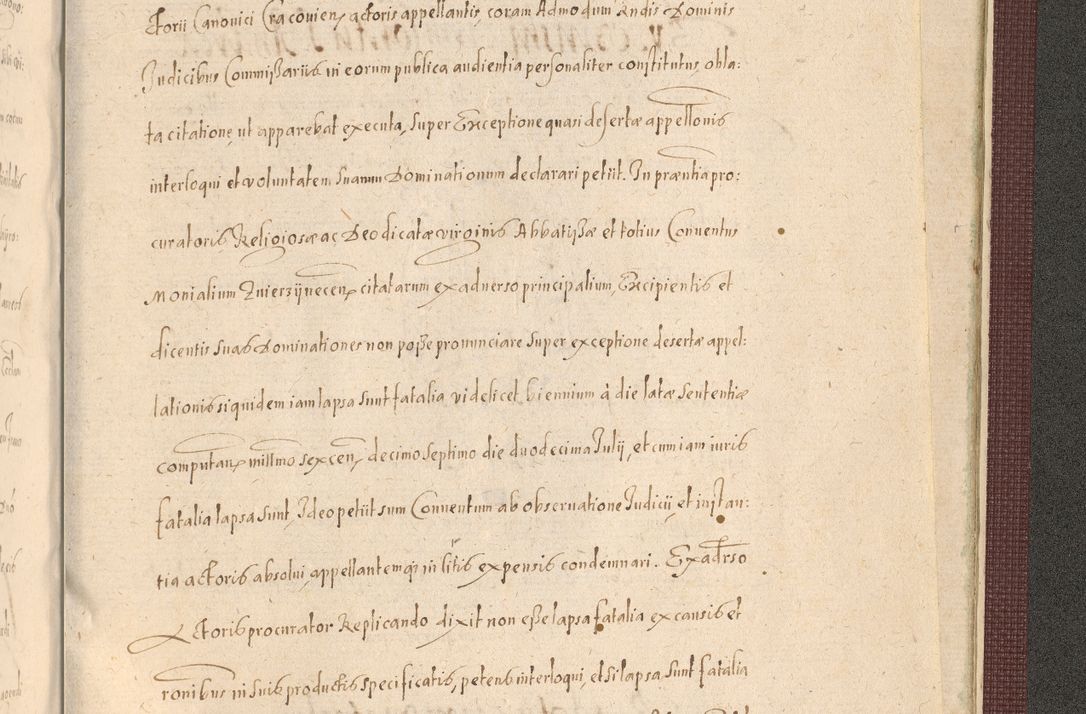 ctorii Canonici Cracovien, actoris appellantis, coram Admodum Rndis Dominis
Judicibus Commissariis in eorum publica audientia personaliter constitutus, obla:
ta citatione, ut apparebat executa, super Exceptione quasi desertæ appellonis
interloqui et voluntatem suarum Dominationum declarari petiit. In præntia pro:
curatoris Religiosæ ac Deo dicatæ virginis Abbatissæ et totius Conventus
Monialium Zwierzÿnecen, citatarum ex adverso principalium, Excipientis et
dicentis suas Dominationes non posse pronunciare super exceptione desertæ appel:
lationis siquidem iam lapsa sunt fatalia videlicet biennium à die latæ sententiæ
computan, millmo sexcen, decimo septimo die duodecima Julij, et cum iam iuris
fatalia lapsa sunt, Ideo petiit sum Conventum ab observatione Judicij, et instan:
tia actoris absolvi, appellantemq in litis expensis condemnari. Ex adrso
Actoris procurator Replicando dixit non esse lapsa fatalia ex causis et
ronibus in suis productis specificatis, petens interloqui, et si lapsa sunt fatalia